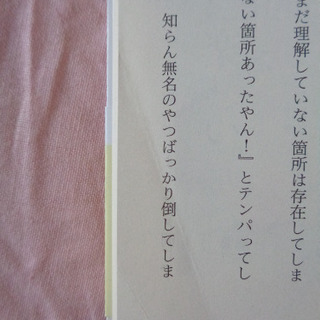 まだ理解していない箇所は存在してしま
ない箇所あったやん！』とテンパってし
知らん無名のやつばっかり倒してしま